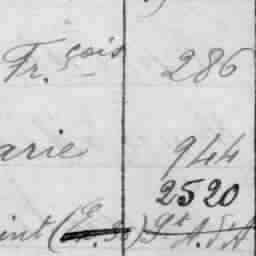 Fr.çois 286
arie 944
2520
int